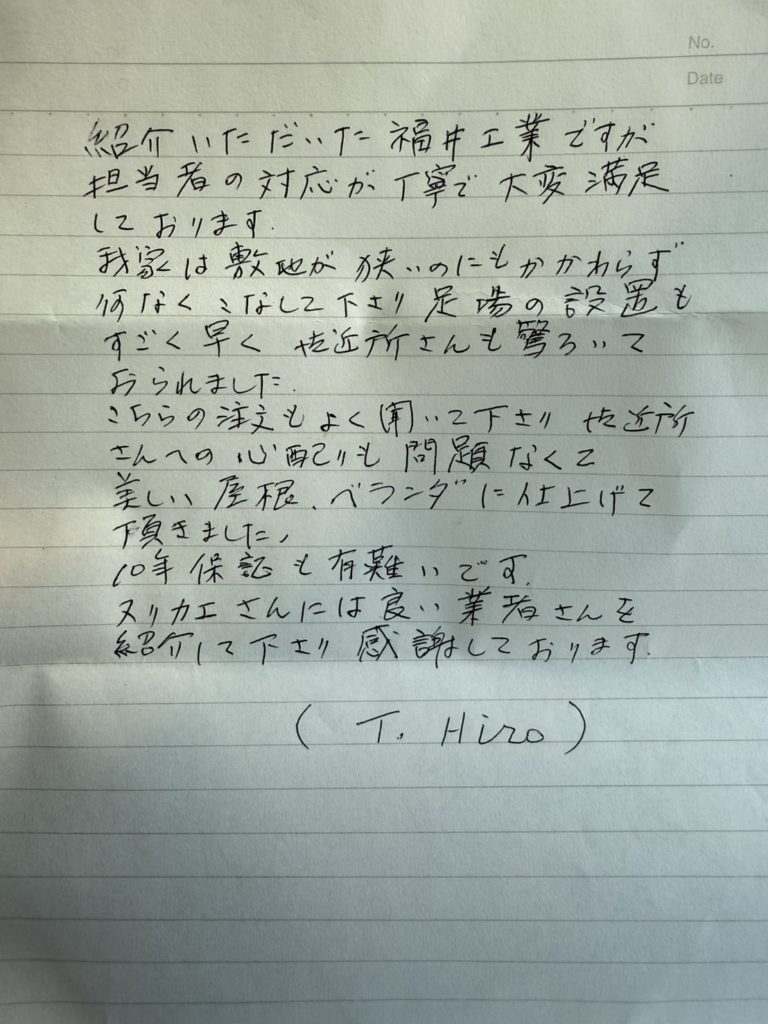 No.
Date
紹介いただいた福井工業ですが
担当者の対応が丁寧で大変満足
しております.
我家は敷地が狭いのにもかかわらず
何なくこなして下さり足場の設置も
すごく早く 近所さんも驚ろいて
おられました.
こちらの注文もよく聞いて下さり 近所
さんへの心配りも問題なくて
美しい屋根、ベランダに仕上げて
頂きました、
10年保証も有難いです.
ヌリカエさんには良い業者さんを
紹介して下さり感謝しております.
(T. Hiro)